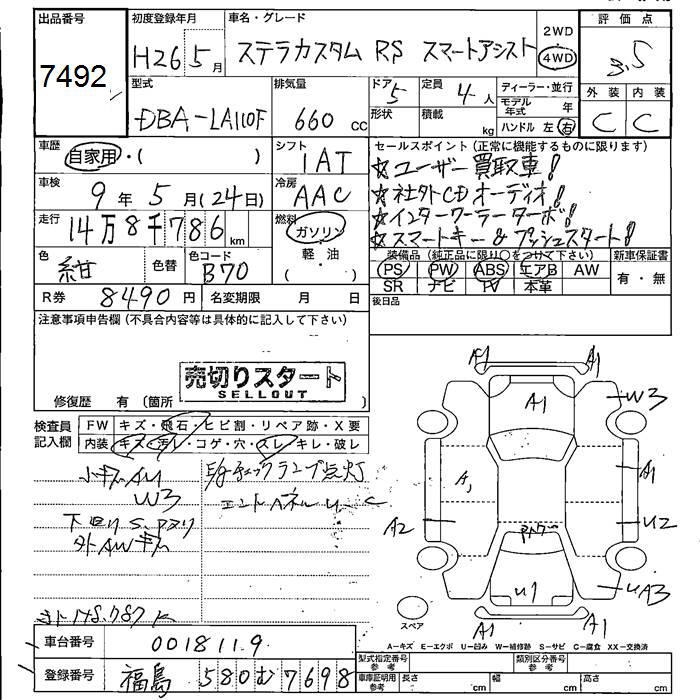 出品番号
7492
初度登録年月
H26 5月
車名・グレード
ステラカスタム RS スマートアシスト
2WD
4WD
評価点
3.5
外装 内装
C C
型式
DBA-LA110F
排気量
660 cc
ドア
5
形状
定員
4人
積載
kg
ディーラー・並行
モデル年式 年
ハンドル 左 右
車歴
自家用・( )
シフト
IAT
車検
9年 5月(24日)
冷房
AAC
走行
14万8千786km
燃料
ガソリン
軽・油
( )
色
紺
色替
色コード
B70
R券 8490円
名変期限 月 日
セールスポイント(正常に機能するものに限ります)
☆ユーザー買取車!
☆社外CDオーディオ!
☆インタークーラーターボ!
☆スマートキー&プッシュスタート!
装備品(純正品に限り○をつけて下さい)
PS PW ABS エアB AW
SR ナビ TV 本革
新車保証書
有・無
後日品
注意事項申告欄(不具合内容等は具体的に記入して下さい)
売切りスタート
SELLOUT
修復歴 有(箇所 )
検査員記入欄
FW キズ・飛石・ヒビ割・リペア跡・X要
内装 キズ・汚レ・コゲ・穴・スレ・キレ・破レ
小キズAU
W3
下回りS.
外AWキズ
E/gチェックランプ点灯
148.787K
A1
A1
A1
W3
A1
A2
U2
U1
UA3
A1
A1
スペア
A-キズ E-エクボ U-凹み W-補修跡 S-サビ C-腐食 XX-交換済
車台番号
0018119
登録番号
福島 580 む 7698
型式指定番号 参考
類別区分番号 参考
車庫証明用 参考
長さ cm
幅 cm
高さ cm